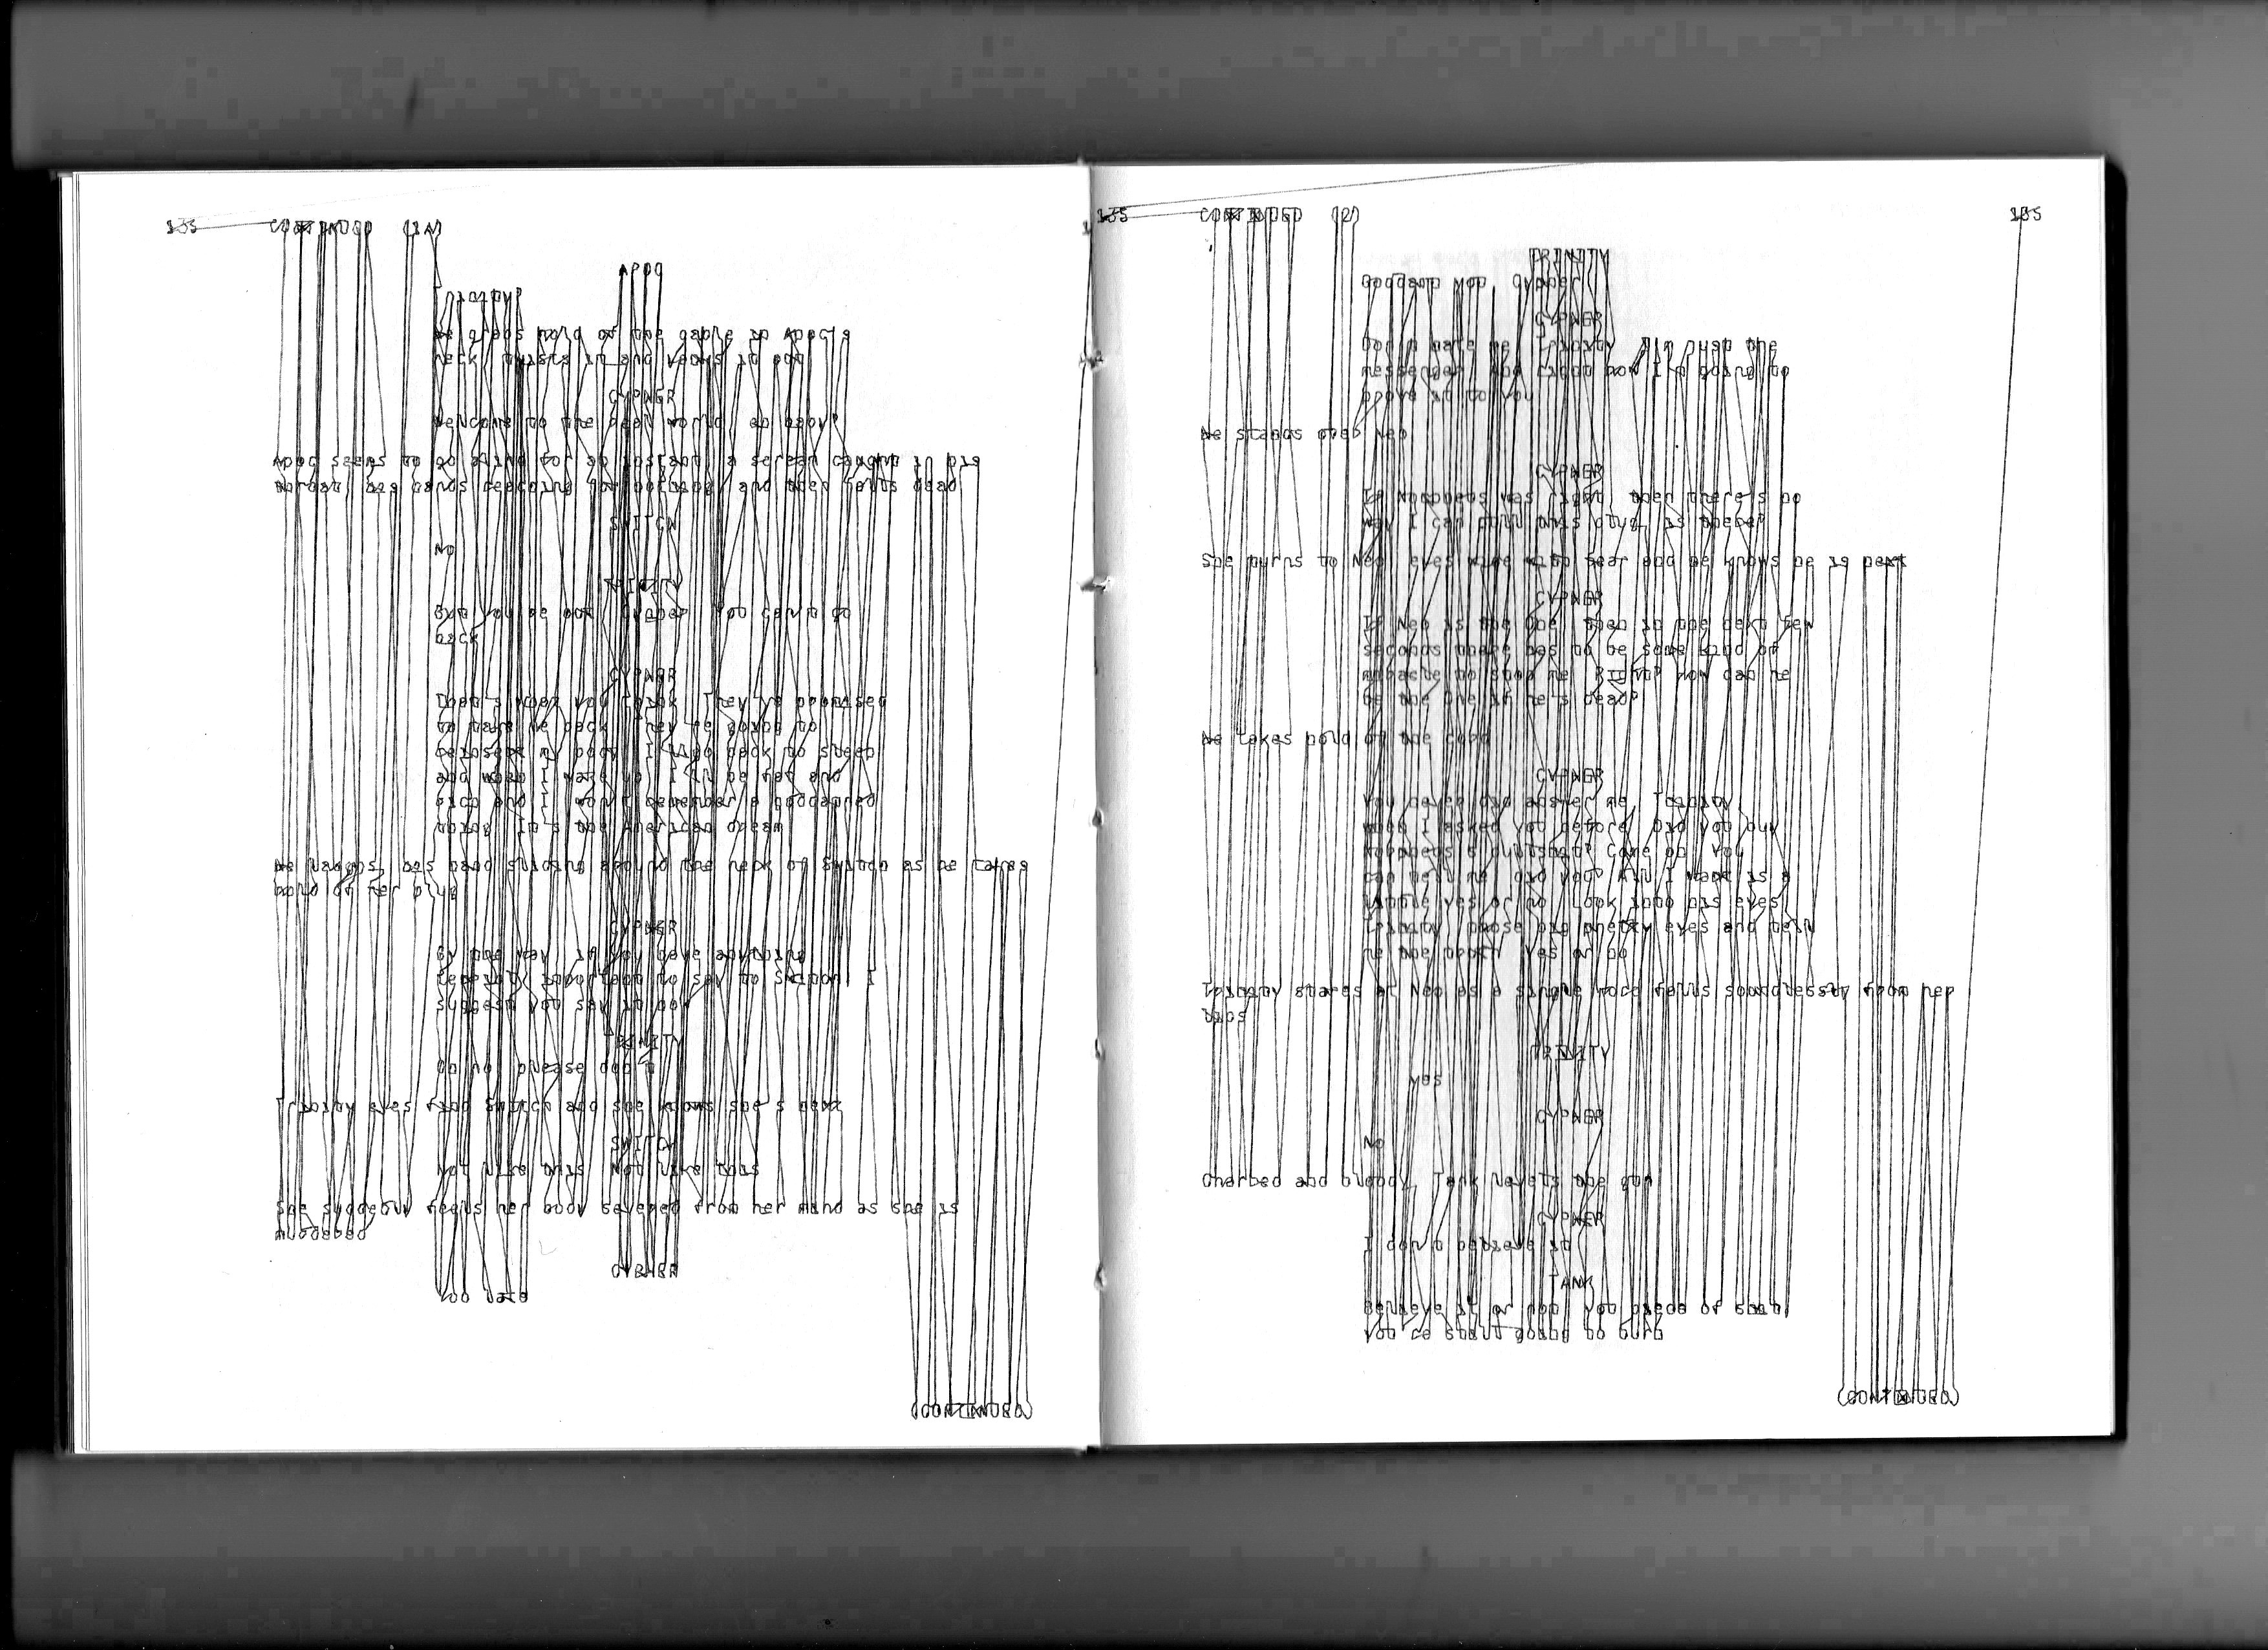 135 CONTINUED (1A)
APOC
Trinity?
He grabs hold of the cable in Apoc's
neck twists it and yanks it out
CYPHER
Welcome to the real world eh baby?
Apoc seems to go blind for an instant a scream caught in his
throat his hands reaching for nothing and then falls dead
SWITCH
No
TRINITY
But you're out Cypher You can't go
back
CYPHER
That's what you think They've promised
to take me back They're going to
reinsert my body I'll go back to sleep
and when I wake up I'll be fat and
rich and I won't remember a goddamned
thing It's the American dream
He laughs, his hand sliding around the neck of Switch as he takes
hold of her plug
CYPHER
By the way if you have anything
terribly important to say to Switch I
suggest you say it now
TRINITY
Oh no please don't
Trinity eyes find Switch and she knows she's next
SWITCH
Not like this Not like this
She suddenly feels her body severed from her mind as she is
murdered
CYPHER
Too late
(CONTINUED)
135 CONTINUED (2) 135
TRINITY
Goddamn you Cypher
CYPHER
Don't hate me Trinity I'm just the
messenger And right now I'm going to
prove it to you
He stands over Neo
CYPHER
If Morpheus was right then there's no
way I can pull this plug, is there?
She turns to Neo eyes wide with fear and he knows he is next
CYPHER
If Neo is the One then in the next few
seconds there has to be some kind of
miracle to stop me RIGHT? how can he
be the One if he's dead?
He takes hold of the cord
CYPHER
You never did answer me Trinity
when I asked you before Did you buy
Morpheus's bullshit? Come on You
can tell me did you? All I want is a
little yes or no Look into his eyes
Trinity those big pretty eyes and tell
me the truth Yes or no
Trinity stares at Neo as a single word falls soundlessly from her
lips
TRINITY
yes
CYPHER
No
Charred and bloody, Tank levels the gun
CYPHER
I don't believe it
TANK
Believe it or not you piece of shit
You're still going to burn
(CONTINUED)